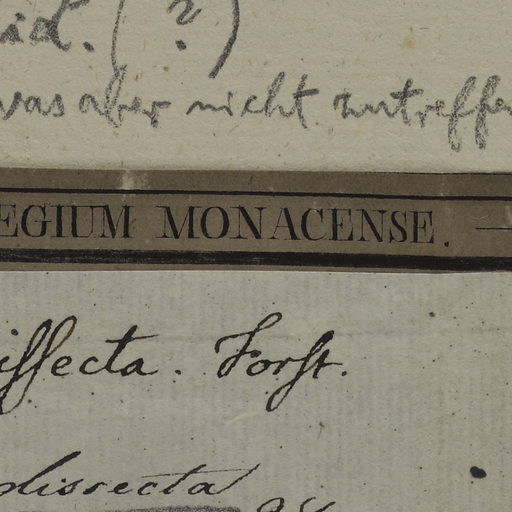 (?)
was aber nicht zutreffen
EGIUM MONACENSE.
issecta. Forst.
dissecta